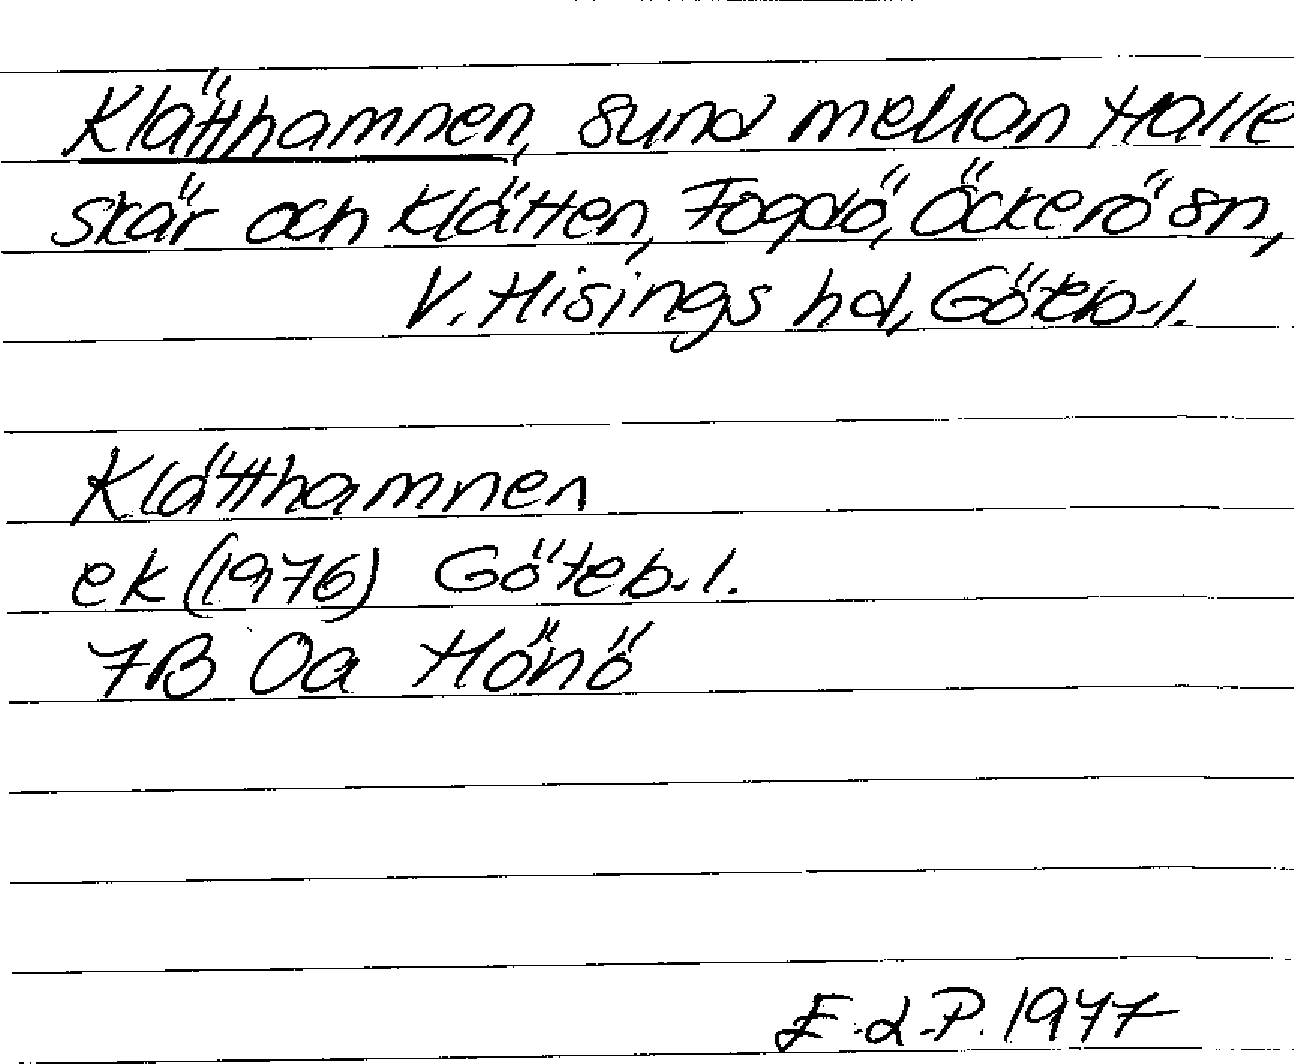 Klätthamnen, sund mellan Halle
skär och Klätten, Fogdö, Öckerö sn,
V. Hisings hd, Göteb.l.
Klätthamnen
ek (1976) Göteb.l.
7B 0a Hönö
E.d.P. 1977